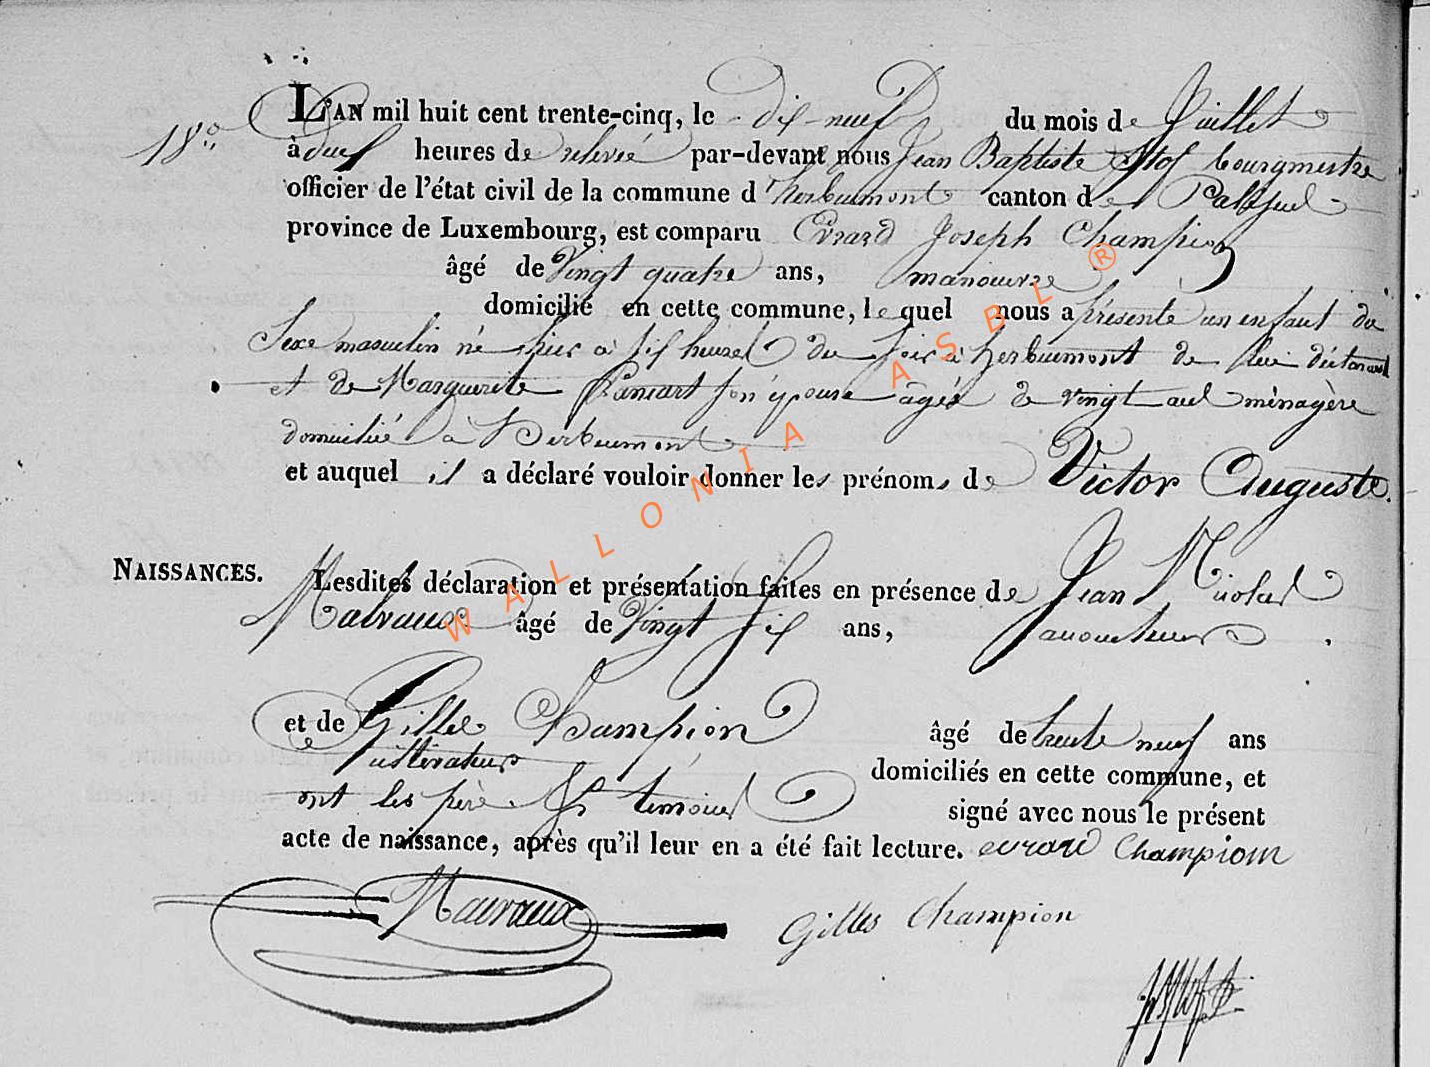 18°
L'AN mil huit cent trente-cinq, le dix neuf du mois de Juillet
à deux heures de relevée par-devant nous Jean Baptiste bourgmestre
officier de l'état civil de la commune d'herbeumont canton de Paliseul
province de Luxembourg, est comparu Evrard Joseph Champion
âgé de vingt quatre ans, manouvre
domicilié en cette commune, le quel nous a présenté un enfant du
Sexe masculin né hier à six heures du soir à herbeumont de lui déclarant
et de Marguerite son épouse agée de vingt ménagère
domiciliée à Herbeumont
et auquel il a déclaré vouloir donner les prénoms de Victor Auguste.
NAISSANCES.
Lesdites déclaration et présentation faites en présence de Jean Nicolas
âgé de Vingt six ans,
et de Gilles Champion âgé de trente neuf ans
domiciliés en cette commune, et
ont les père et témoins signé avec nous le présent
acte de naissance, après qu'il leur en a été fait lecture. evrard Champion
Gilles Champion
WALLONIA ASBL ®